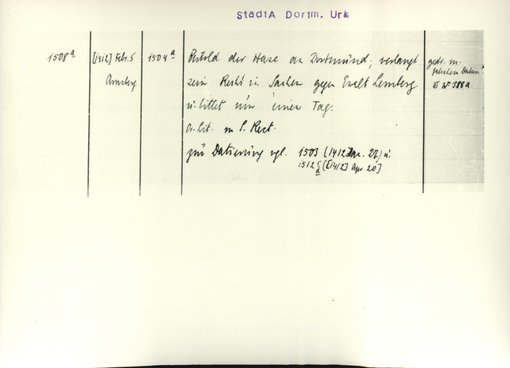 StadtA Dortm. Urk
1508 a
[1412] Febr. 5
Arnsberg
1504 a
der Hase an Dortmund, verlangt
sein Recht in Sachen gegen Evelt Lemberg
u. bittet um einen Tag.
Or. m. S. Rest.
zur Datierung vgl. 1503 (1412 Jan. 27) u.
1512 a ([1412] Apr. 20]
gedr. m.
falschem Datum
III N° 388a.